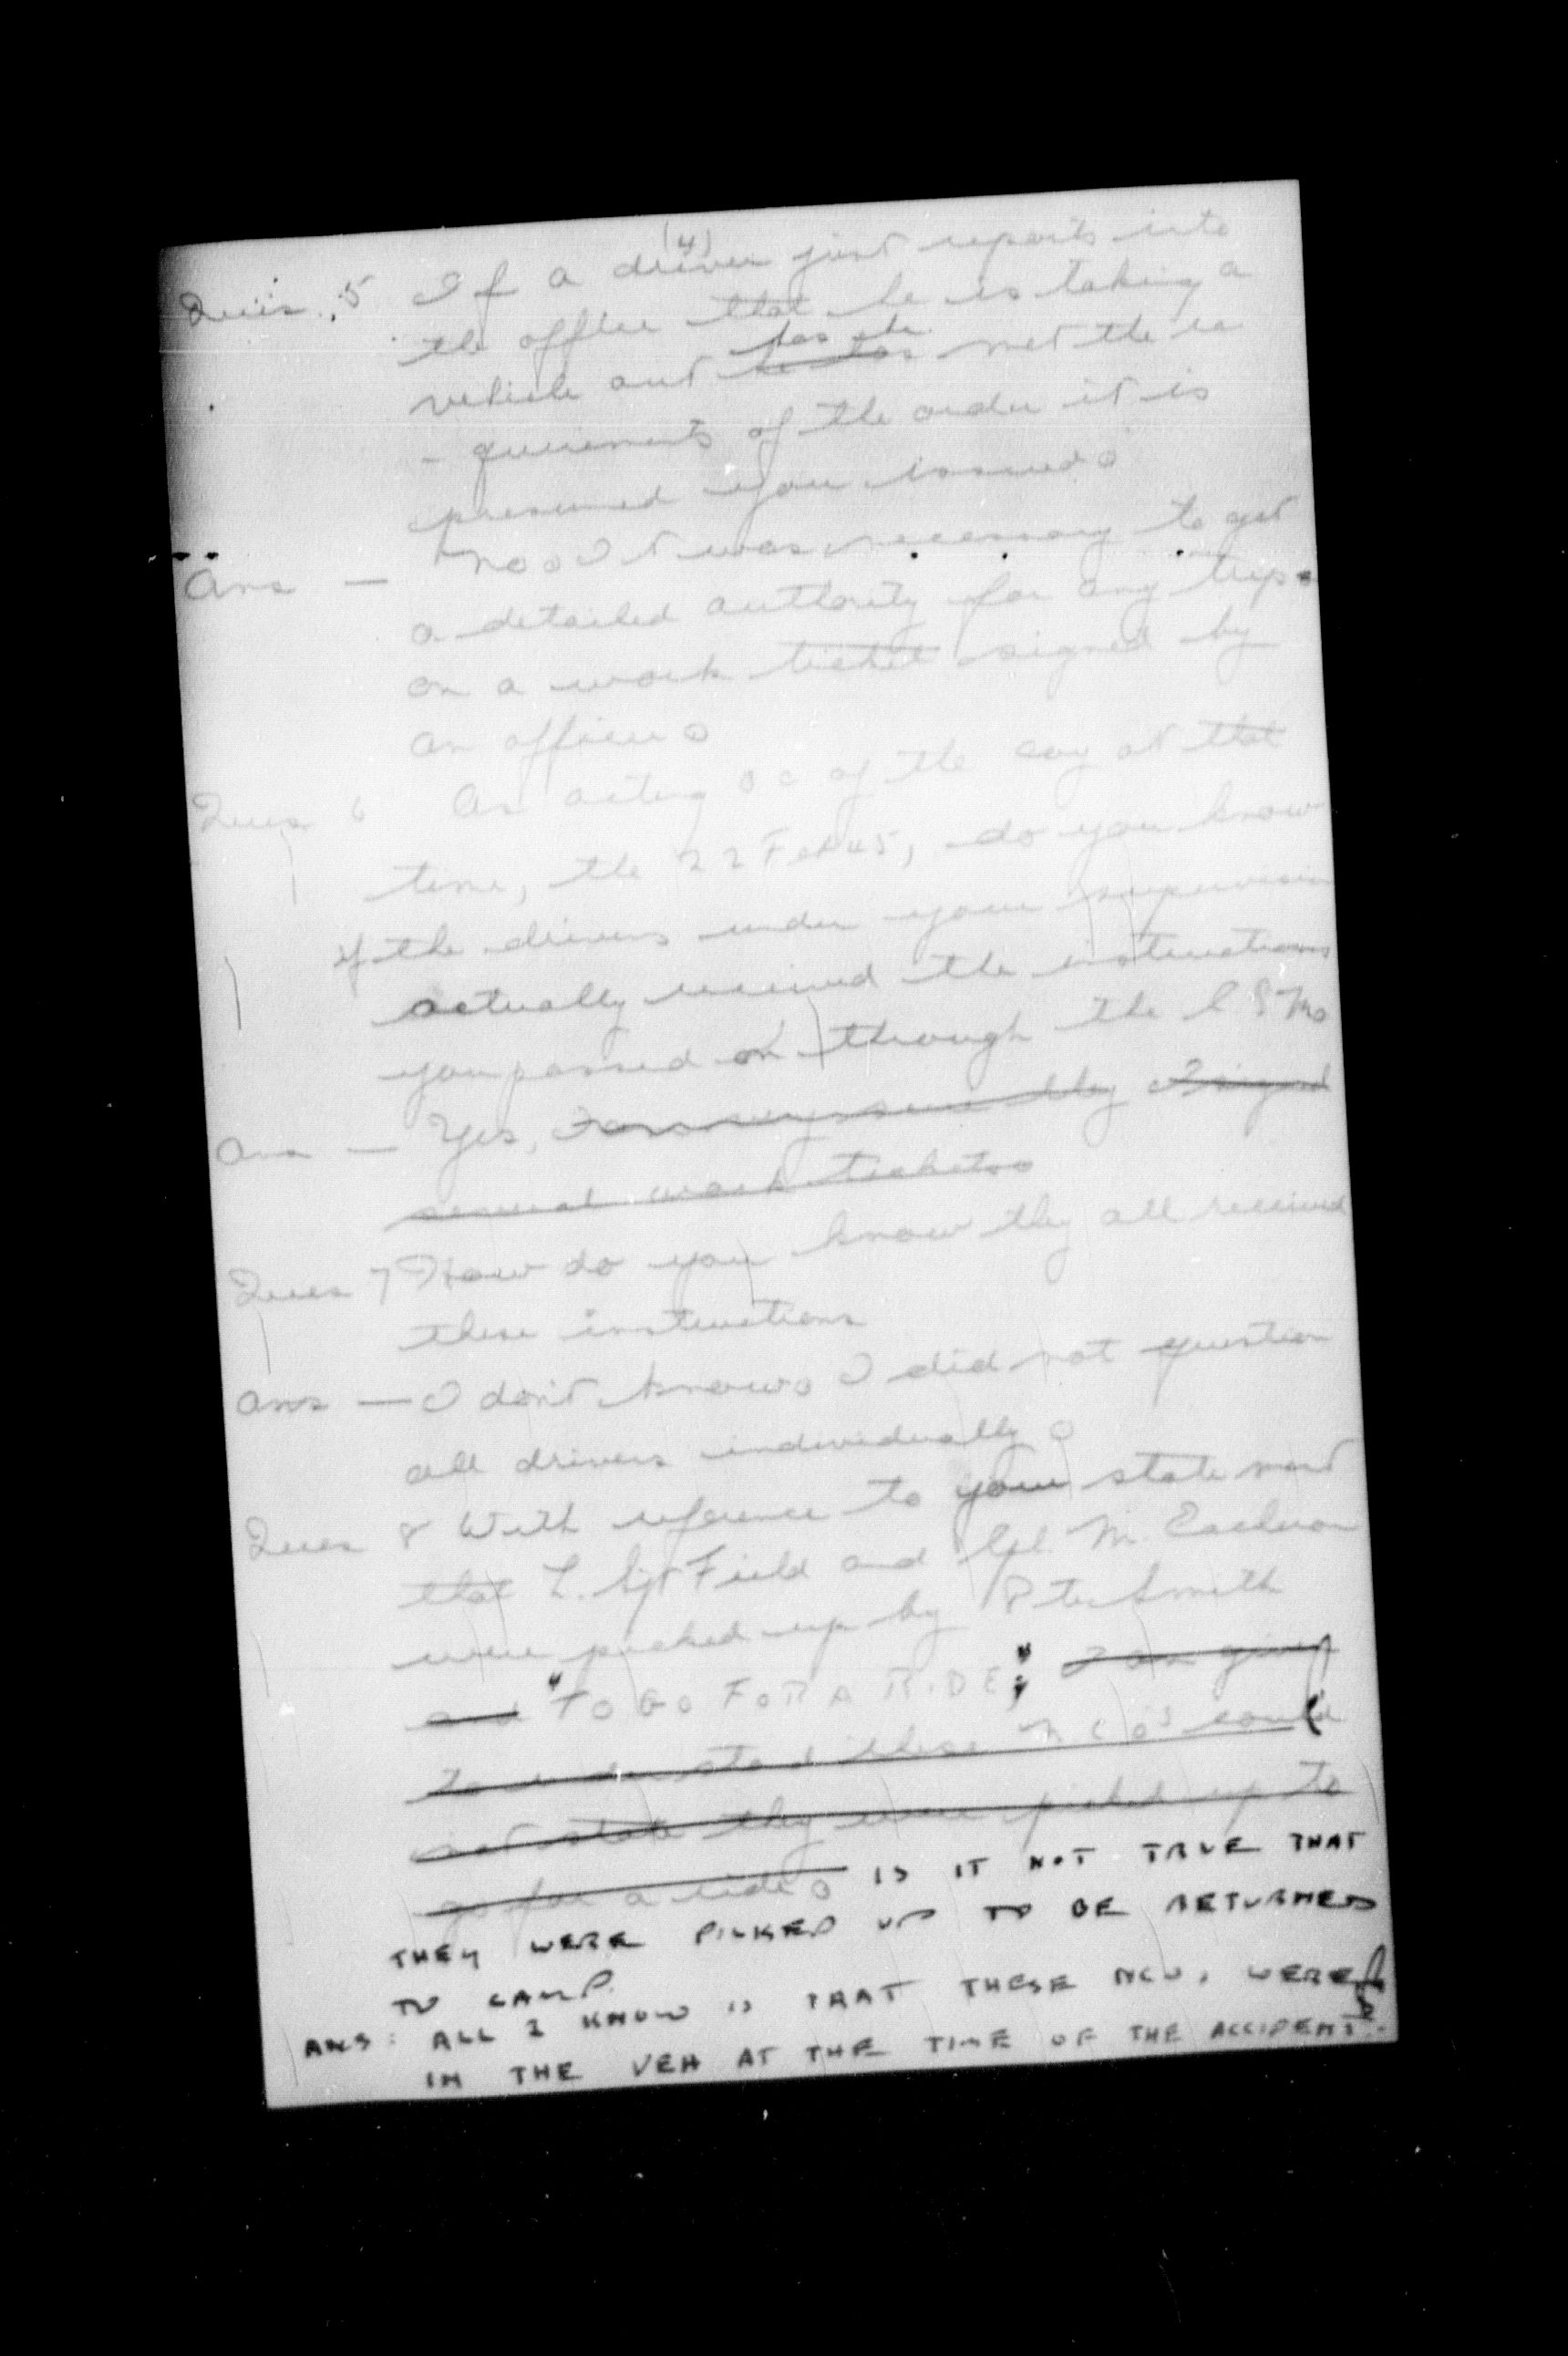 (4)
Ques. 5 If a driver just reports into
the office that he is taking a
has he
vehicle out he has met the re
- quirements of the order it is
presumed you issued.
Ans — No. It was necessary to get
a detailed authority for any trip.
on a work ticket signed by
an officer.
Ques 6 As acting O C of the coy at that
time, the 22 Feb 45, do you know
if the drivers under your supervision
actually received the instructions
you passed on through the C S M.
Ans — Yes, I signed
several work tickets.
Ques 7 How do you know they all received
these instructions
Ans — I don't know. I did not question
all drivers individually.
Ques 8 With reference to your statement
that L. Sjt Field and Cpl. Mc Eachern
were picked up by Pte Smith
and "TO GO FOR A RIDE"; I am given
to understand these NCO's could
not state they were picked up to
go for a ride. IS IT NOT TRUE THAT
THEY WERE PICKED UP TO BE RETURNED
TO CAMP.
ANS: ALL I KNOW IS THAT THESE NCO, WERE
IN THE VEH AT THE TIME OF THE ACCIDENT.